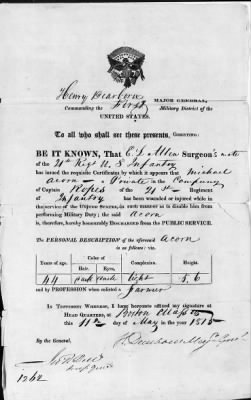 Henry Dearborn MAJOR GENERAL,
Commanding the First Military District of the
UNITED STATES.
To all who shall see these presents, GREETING:
BE IT KNOWN, That E L Allen Surgeon's mate
of the 21st Regt U. S Infantry
has issued the requisite Certificate by which it appears that Michael
Acorn a Private in the Company
of Captain Ropes of the 21st Regiment
of Infantry has been wounded or injured while in
the service of the UNITED STATES, in such manner as to disable him from
performing Military Duty; the said Acorn
is, therefore, hereby honourably DISCHARGED from the PUBLIC SERVICE.
The PERSONAL DESCRIPTION of the aforesaid Acorn
is as follows: viz.
Years of age. Color Complexion. Height.
Hair. Eyes.
44 dark light 5.6
and by PROFESSION when enlisted a farmer
IN TESTIMONY WHEREOF, I have hereunto affixed my signature at
HEAD QUARTERS, at Boston Mass
this 11th day of May in the year 1815
By the General.
1262